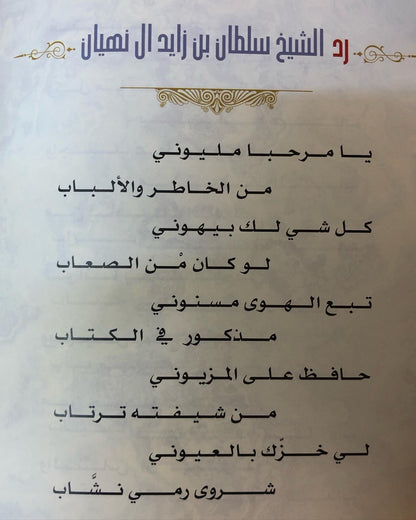 رد الشيخ سلطان بن زايد ال نهيان
يا مرحبا مليوني
من الخاطر والألباب
كل شي لك بيهوني
لو كان مْن الصعاب
تبع الهوى مسنوني
مذكور في الكتاب
حافظ على المزيوني
من شيفته ترتاب
لي خزّك بالعيوني
شروى رمي نشَّاب